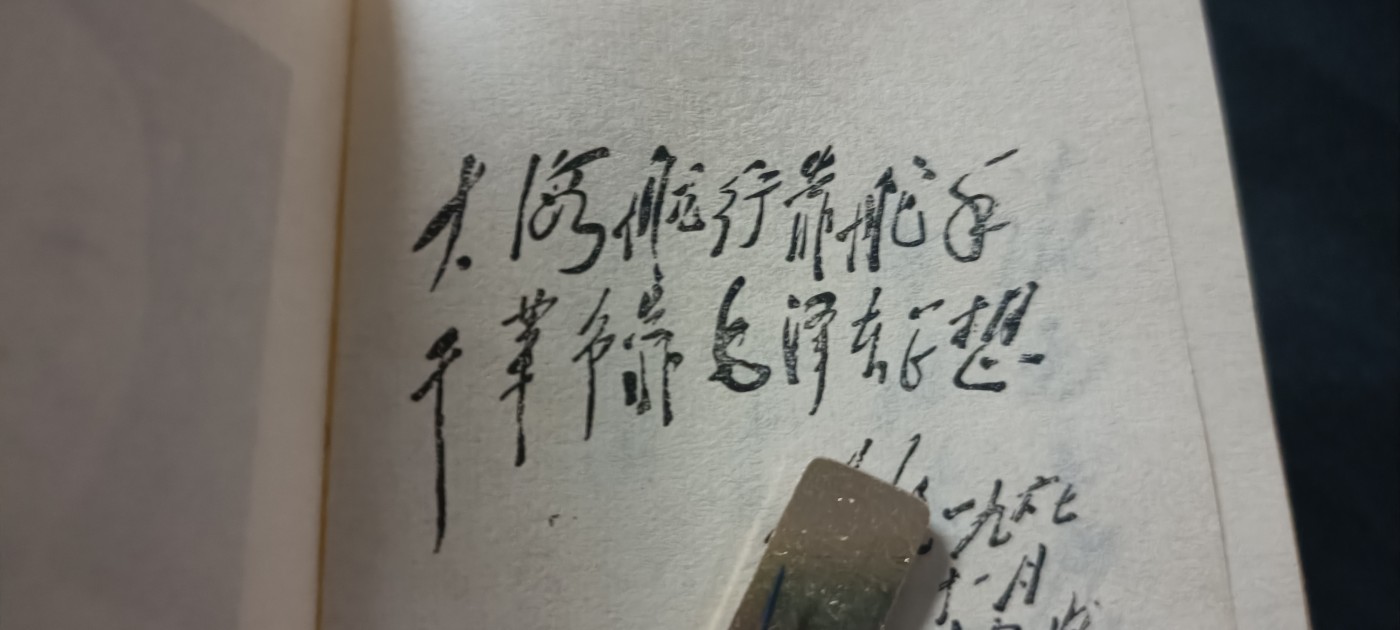 大海航行靠舵手
干革命靠毛泽东思想
一九六七
十一月